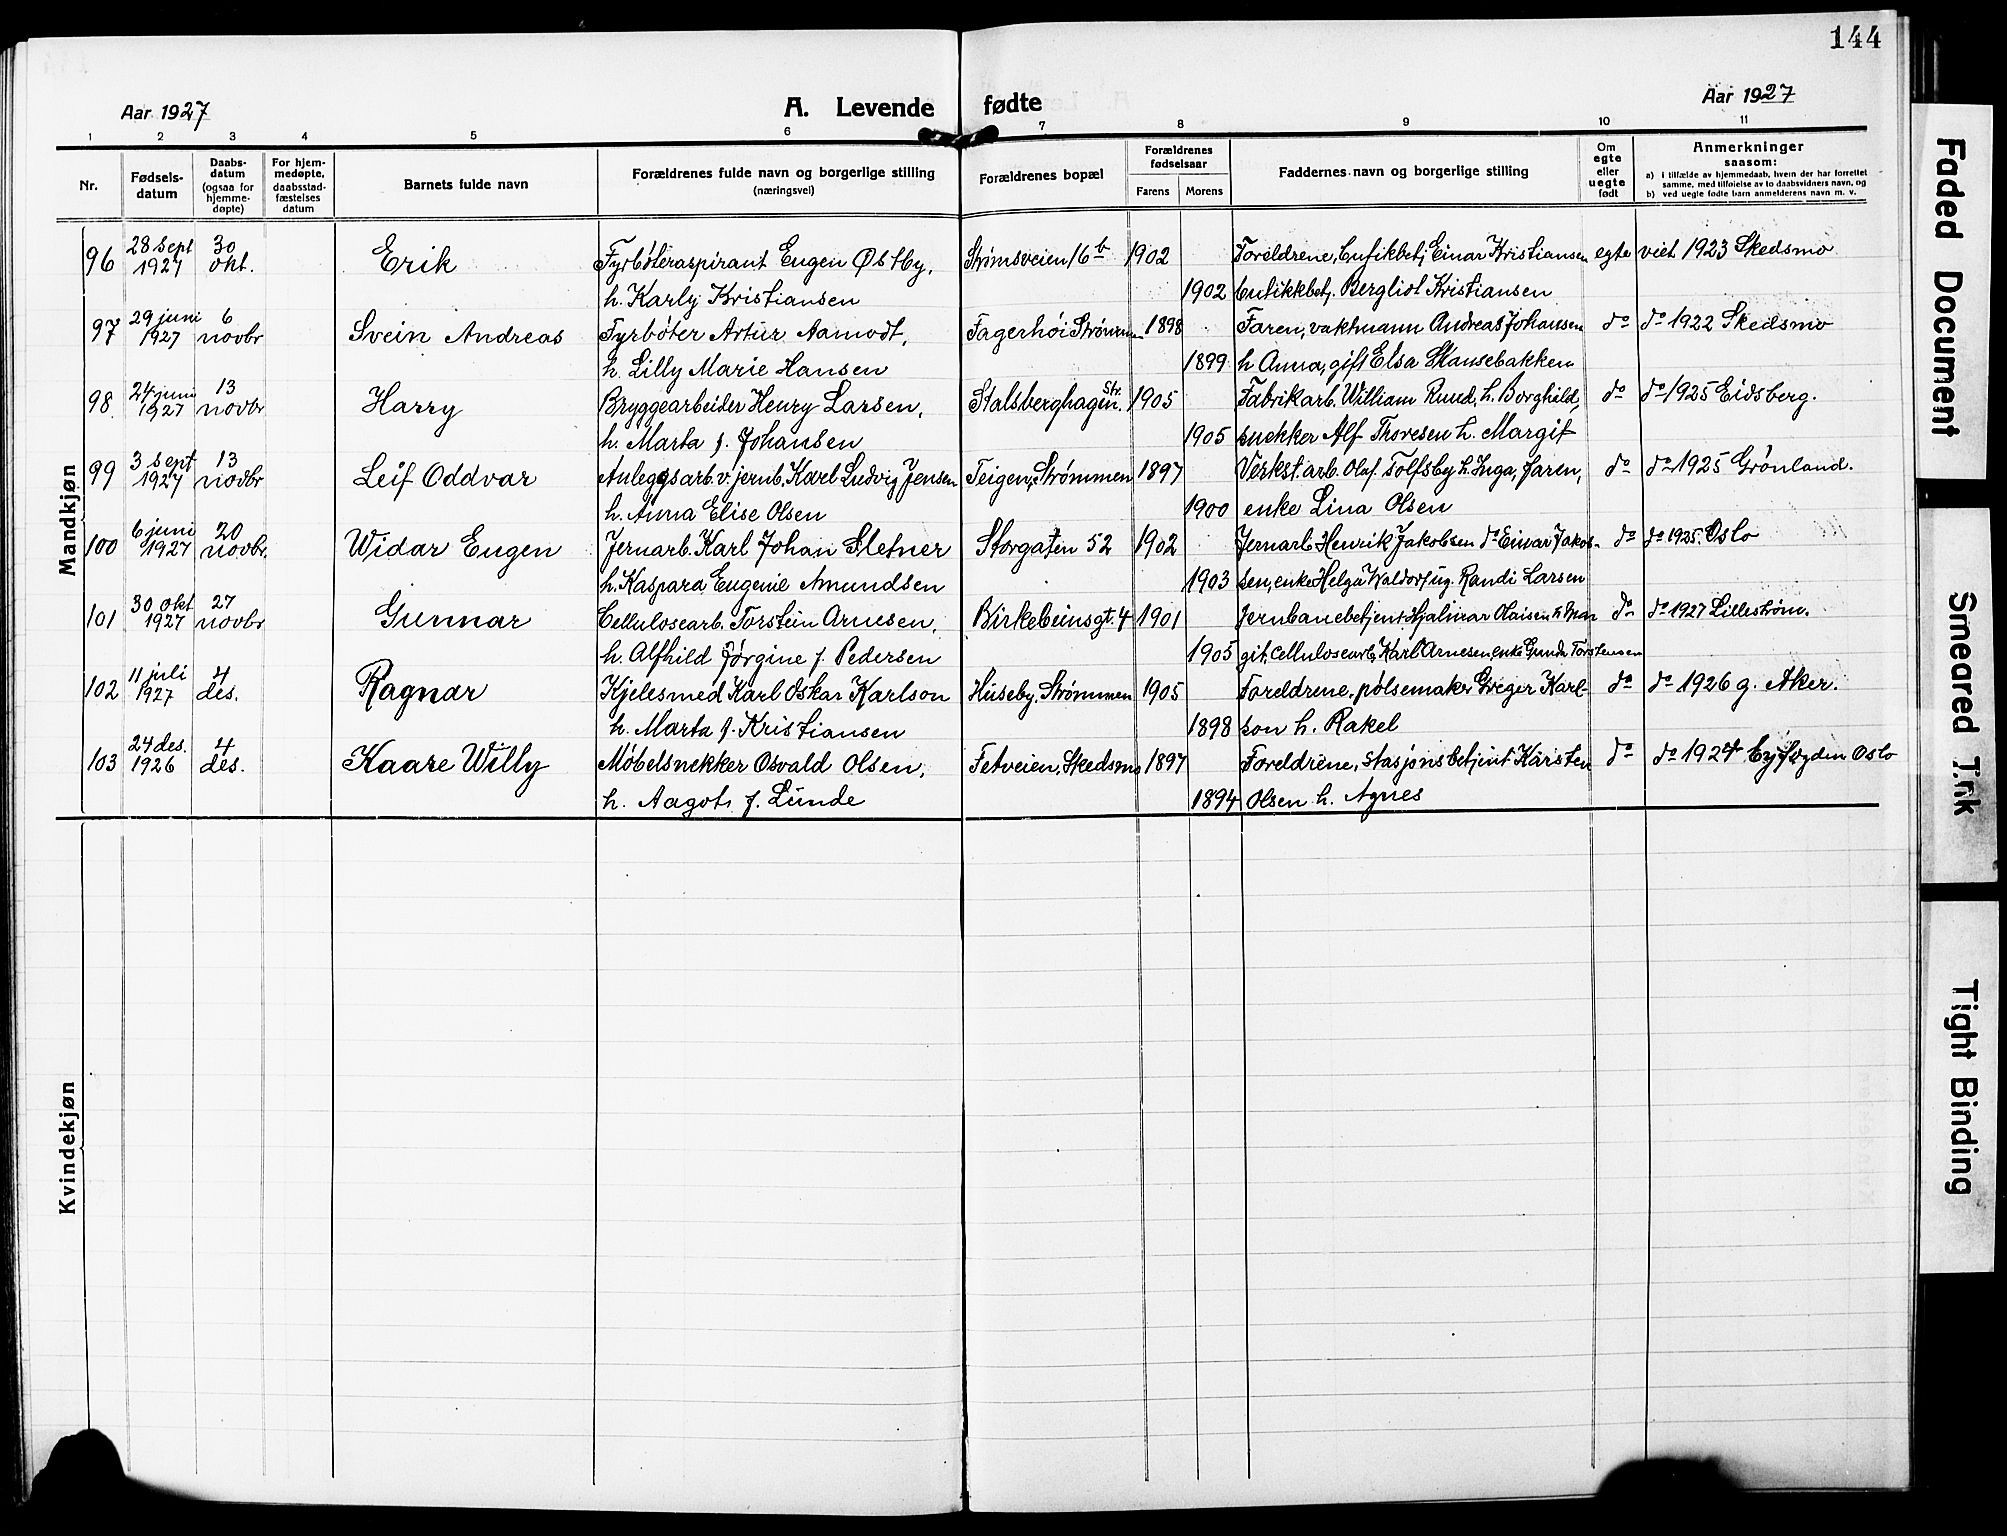 144
Aar 1927 A. Levende fødte Aar 1927
1 2 3 4 5 6 7 8 9 10 11
Nr. Fødsels-datum Daabs-datum (ogsaa for hjemme-døpte) For hjem-medøpte, daabsstad-fæstelses datum Barnets fulde navn Forældrenes fulde navn og borgerlige stilling (næringsvei) Forældrenes bopæl Forældrenes fødselsaar Farens Morens Faddernes navn og borgerlige stilling Om egte eller uegte født Anmerkninger saasom:
a) i tilfælde av hjemmedaab, hvem der har forrettet samme, med tilføielse av to daabsvidners navn, og
b) ved uegte fødte barn anmelderens navn m. v.
Mandkjøn
96 28 sept 1927 30 okt. Erik Fyrbøteraspirant Eugen Østby, Strømsveien 16 b 1902 Foreldrene, butikkbetj Einar Kristiansen egte viet 1923 Skedsmo
h. Karly Kristiansen 1902 butikkbetj. Bergliot Kristiansen
97 29 juni 1927 6 novbr Svein Andreas Fyrbøter Artur Aamodt, Fagerhøi Strømmen 1898 Faren, vaktmann Andreas Johansen do do 1922 Skedsmo
h. Lilly Marie Hansen 1899 h Anna, gift Elsa Stansebakken
98 24 juni 1927 13 novbr Harry Bryggearbeider Henry Larsen, Stalsberghagen Str. 1905 Fabrikarb. William Ruud, h. Borghild, do do 1925 Eidsberg.
h. Marta f. Johansen 1905 snekker Alf Thoresen h. Margit
99 3 sept 1927 13 novbr Leif Oddvar Anleggsarb. v. jernb. Karl Ludvig Jensen Teigen, Strømmen 1897 Verkst. arb. Olaf Tolfsby h. Inga, faren, do do 1925 Grønland.
h. Anna Elise Olsen 1900 enke Lina Olsen
100 6 juni 1927 20 novbr. Widar Eugen Jernarb. Karl Johan Sletner Storgaten 52 1902 Jernarb. Henrik Jakobsen do Einar Jakob- do do 1925. Oslo
h. Kaspara Eugenie Amundsen 1903 sen, enke Helga ug. Randi Larsen
101 30 okt 1927 27 novbr Gunnar Cellulosearb. Torstein Arnesen, Birkebeinsgt. 4 1901 Jernbanebetjent Hjalmar Olaisen h Mar do do 1927 Lillestrøm.
h. Alfhild Jørgine f. Pedersen 1905 git, cellulosearb. Karl Arnesen, enke Gunda Torstensen
102 11 juli 1927 4 des. Ragnar Kjelesmed Karl Oskar Karlson Huseby, Strømmen 1905 Foreldrene, pølsemaker Greger Karl- do do 1926 g. Aker.
h. Marta f. Kristiansen 1898 son h. Rakel
103 24 des. 1926 4 des. Kaare Willy Møbelsnekker Osvald Olsen, Fetveien, Skedsmo 1897 Foreldrene, stasjonsbetjent Karsten do do 1924 Byfogden Oslo
h. Aagot f. Lunde 1894 Olsen h. Agnes
Kvindekjøn
Faded Document
Smeared Ink
Tight Binding